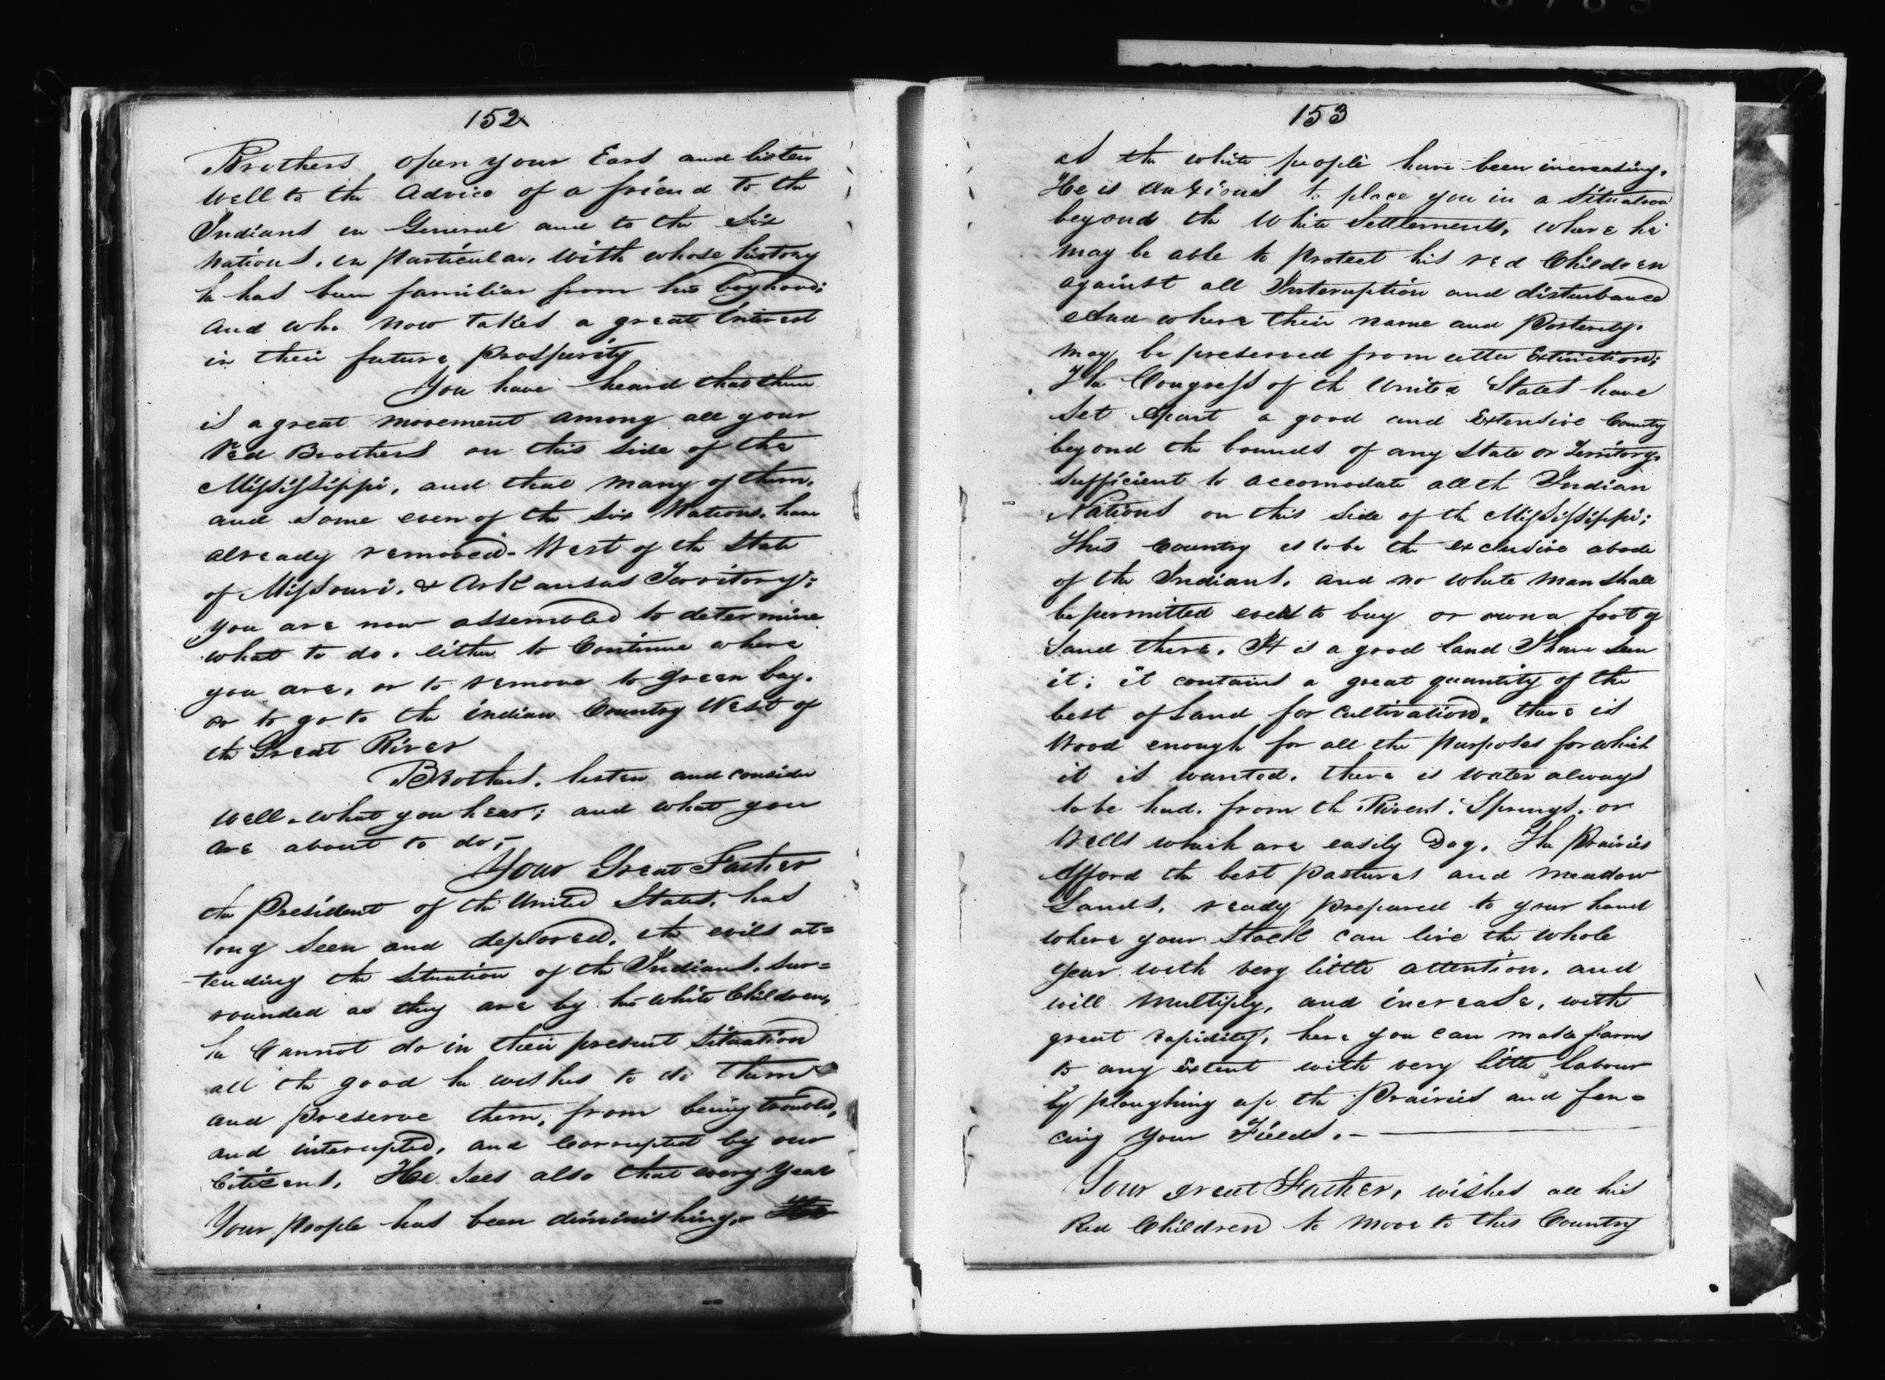 152
Brothers, open your Ears and listen
well to the Advice of a friend to the
Indians in General and to the Six
Nations, in particular, with whose history
he has been familiar from his boyhood;
and who now takes a great Interest
in their future prosperity
You have heard that there
is a great movement among all your
Red Brothers on this side of the
Mississippi, and that many of them,
and some even of the Six Nations, have
already removed West of the State
of Missouri, & Arkansas Territory;
you are now assembled to determine
what to do, either to Continue where
you are, or to remove to Green bay,
or to go to the indian Country West of
the Great River
Brothers, listen and consider
well what you hear; and what you
are about to do;
Your Great Father
the President of the United States, has
long seen and deplored, the evils at=
tending the situation of the Indians, sur=
rounded as they are by his white Children,
he Cannot do in their present situation
all the good he wishes to do them
and preserve them, from being troubled,
and interupted, and Corrupted by our
Citizens. He sees also that every year
Your people has been diminishing,
153
as the white people have been increasing.
He is anxious to place you in a situation
beyond the White Settlements, where he
may be able to protect his red Children
against all Interuption and disturbance
And where their name and Posterity.
may be preserved from utter Extinction;
The Congress of the United States have
Set Apart a good and Extensive County
beyond the bounds of any State or Territory,
sufficient to accomodate all the Indian
Nations on this side of the Mississippi;
This Country is to be the exclusive abode
of the Indians, and no white man shall
be permitted even to buy or own a foot of
Land there. It is a good land I have seen
it; it contains a great quantity of the
best of Land for cultivation, there is
Wood enough for all the purposes for which
it is wanted, there is water always
to be had from the Rivers, Springs, or
Wells which are easily Dug. The Prairies
Afford the best pastures and meadow
Lands, ready prepared to your hand
where your Stock can live the whole
year with very little attention, and
will multiply, and increase, with
great rapidity, here you can make farms
to any Extent with very little labour
by ploughing up the Prairies and fen=
cing your Fields.
Your great Father, wishes all his
Red Children to move to this Country